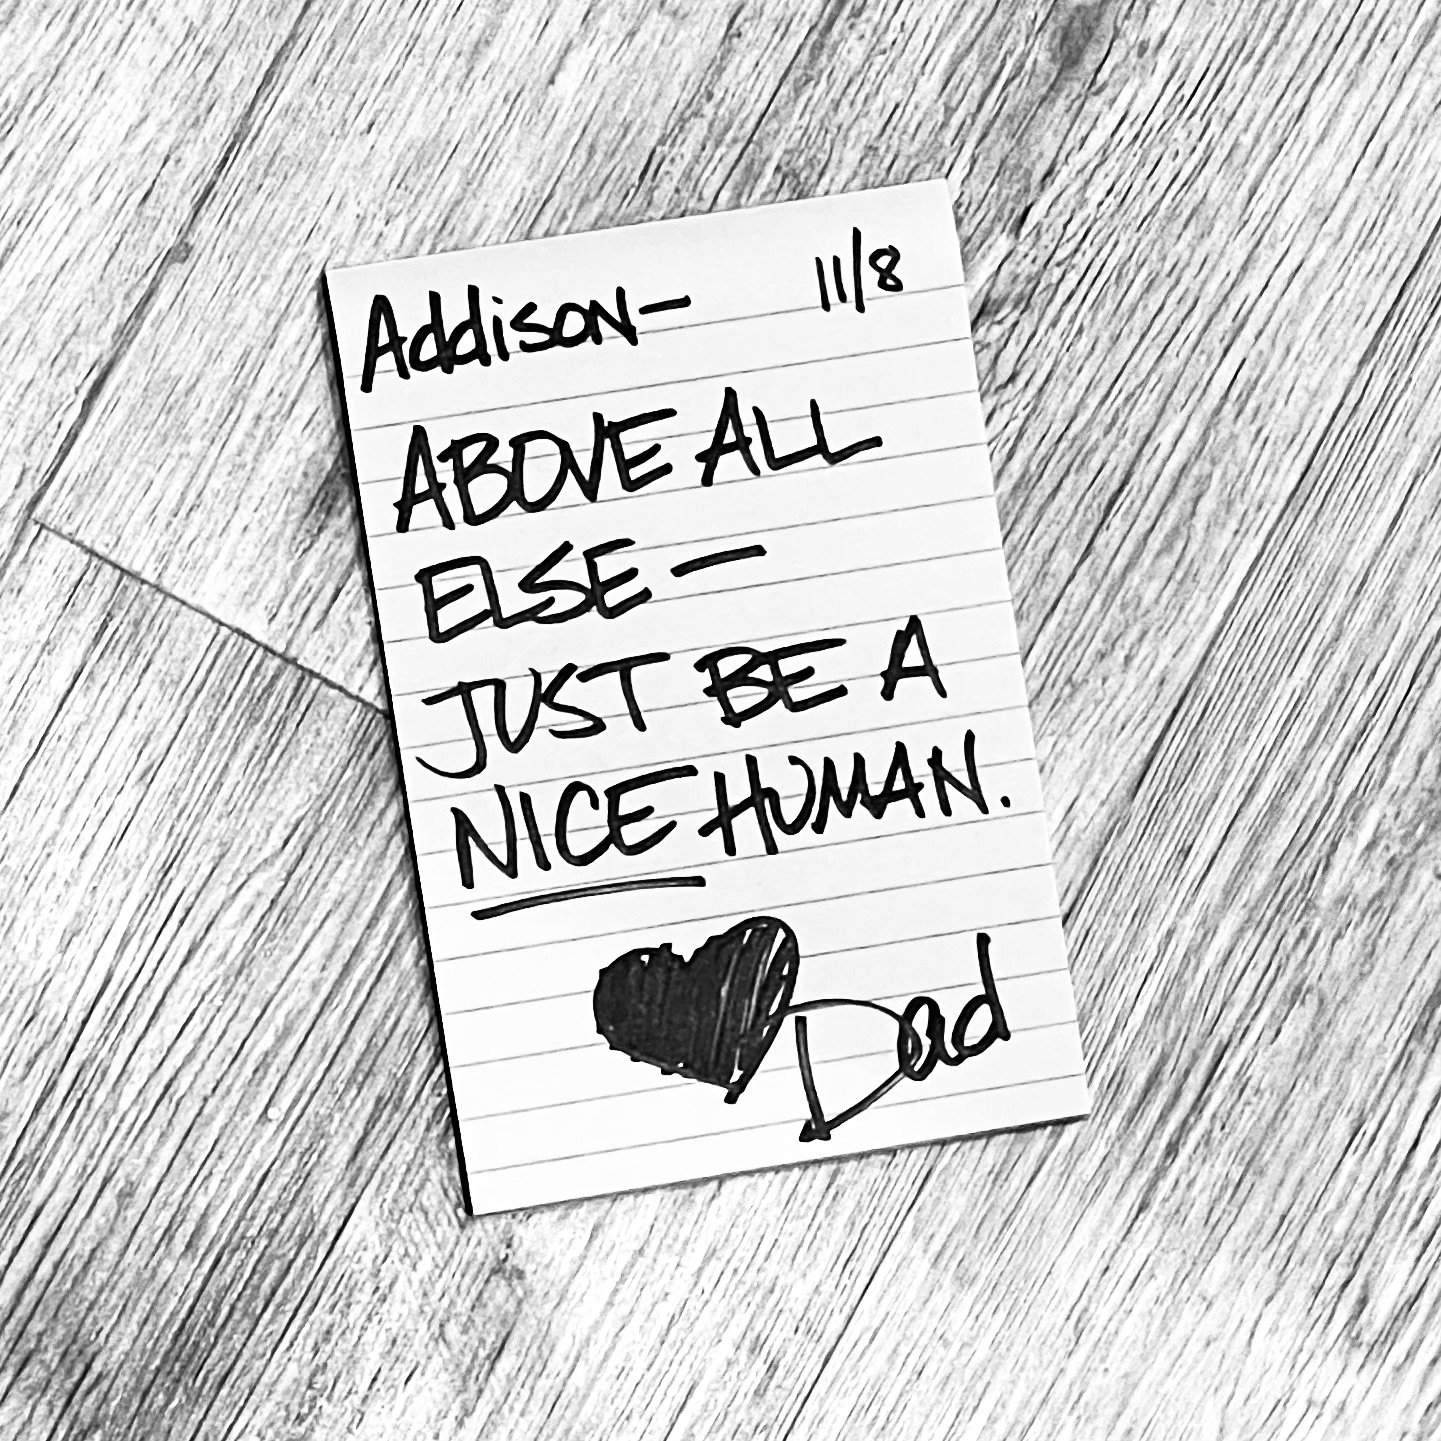 Addison— 11/8
ABOVE ALL
ELSE—
JUST BE A
NICE HUMAN.
Dad